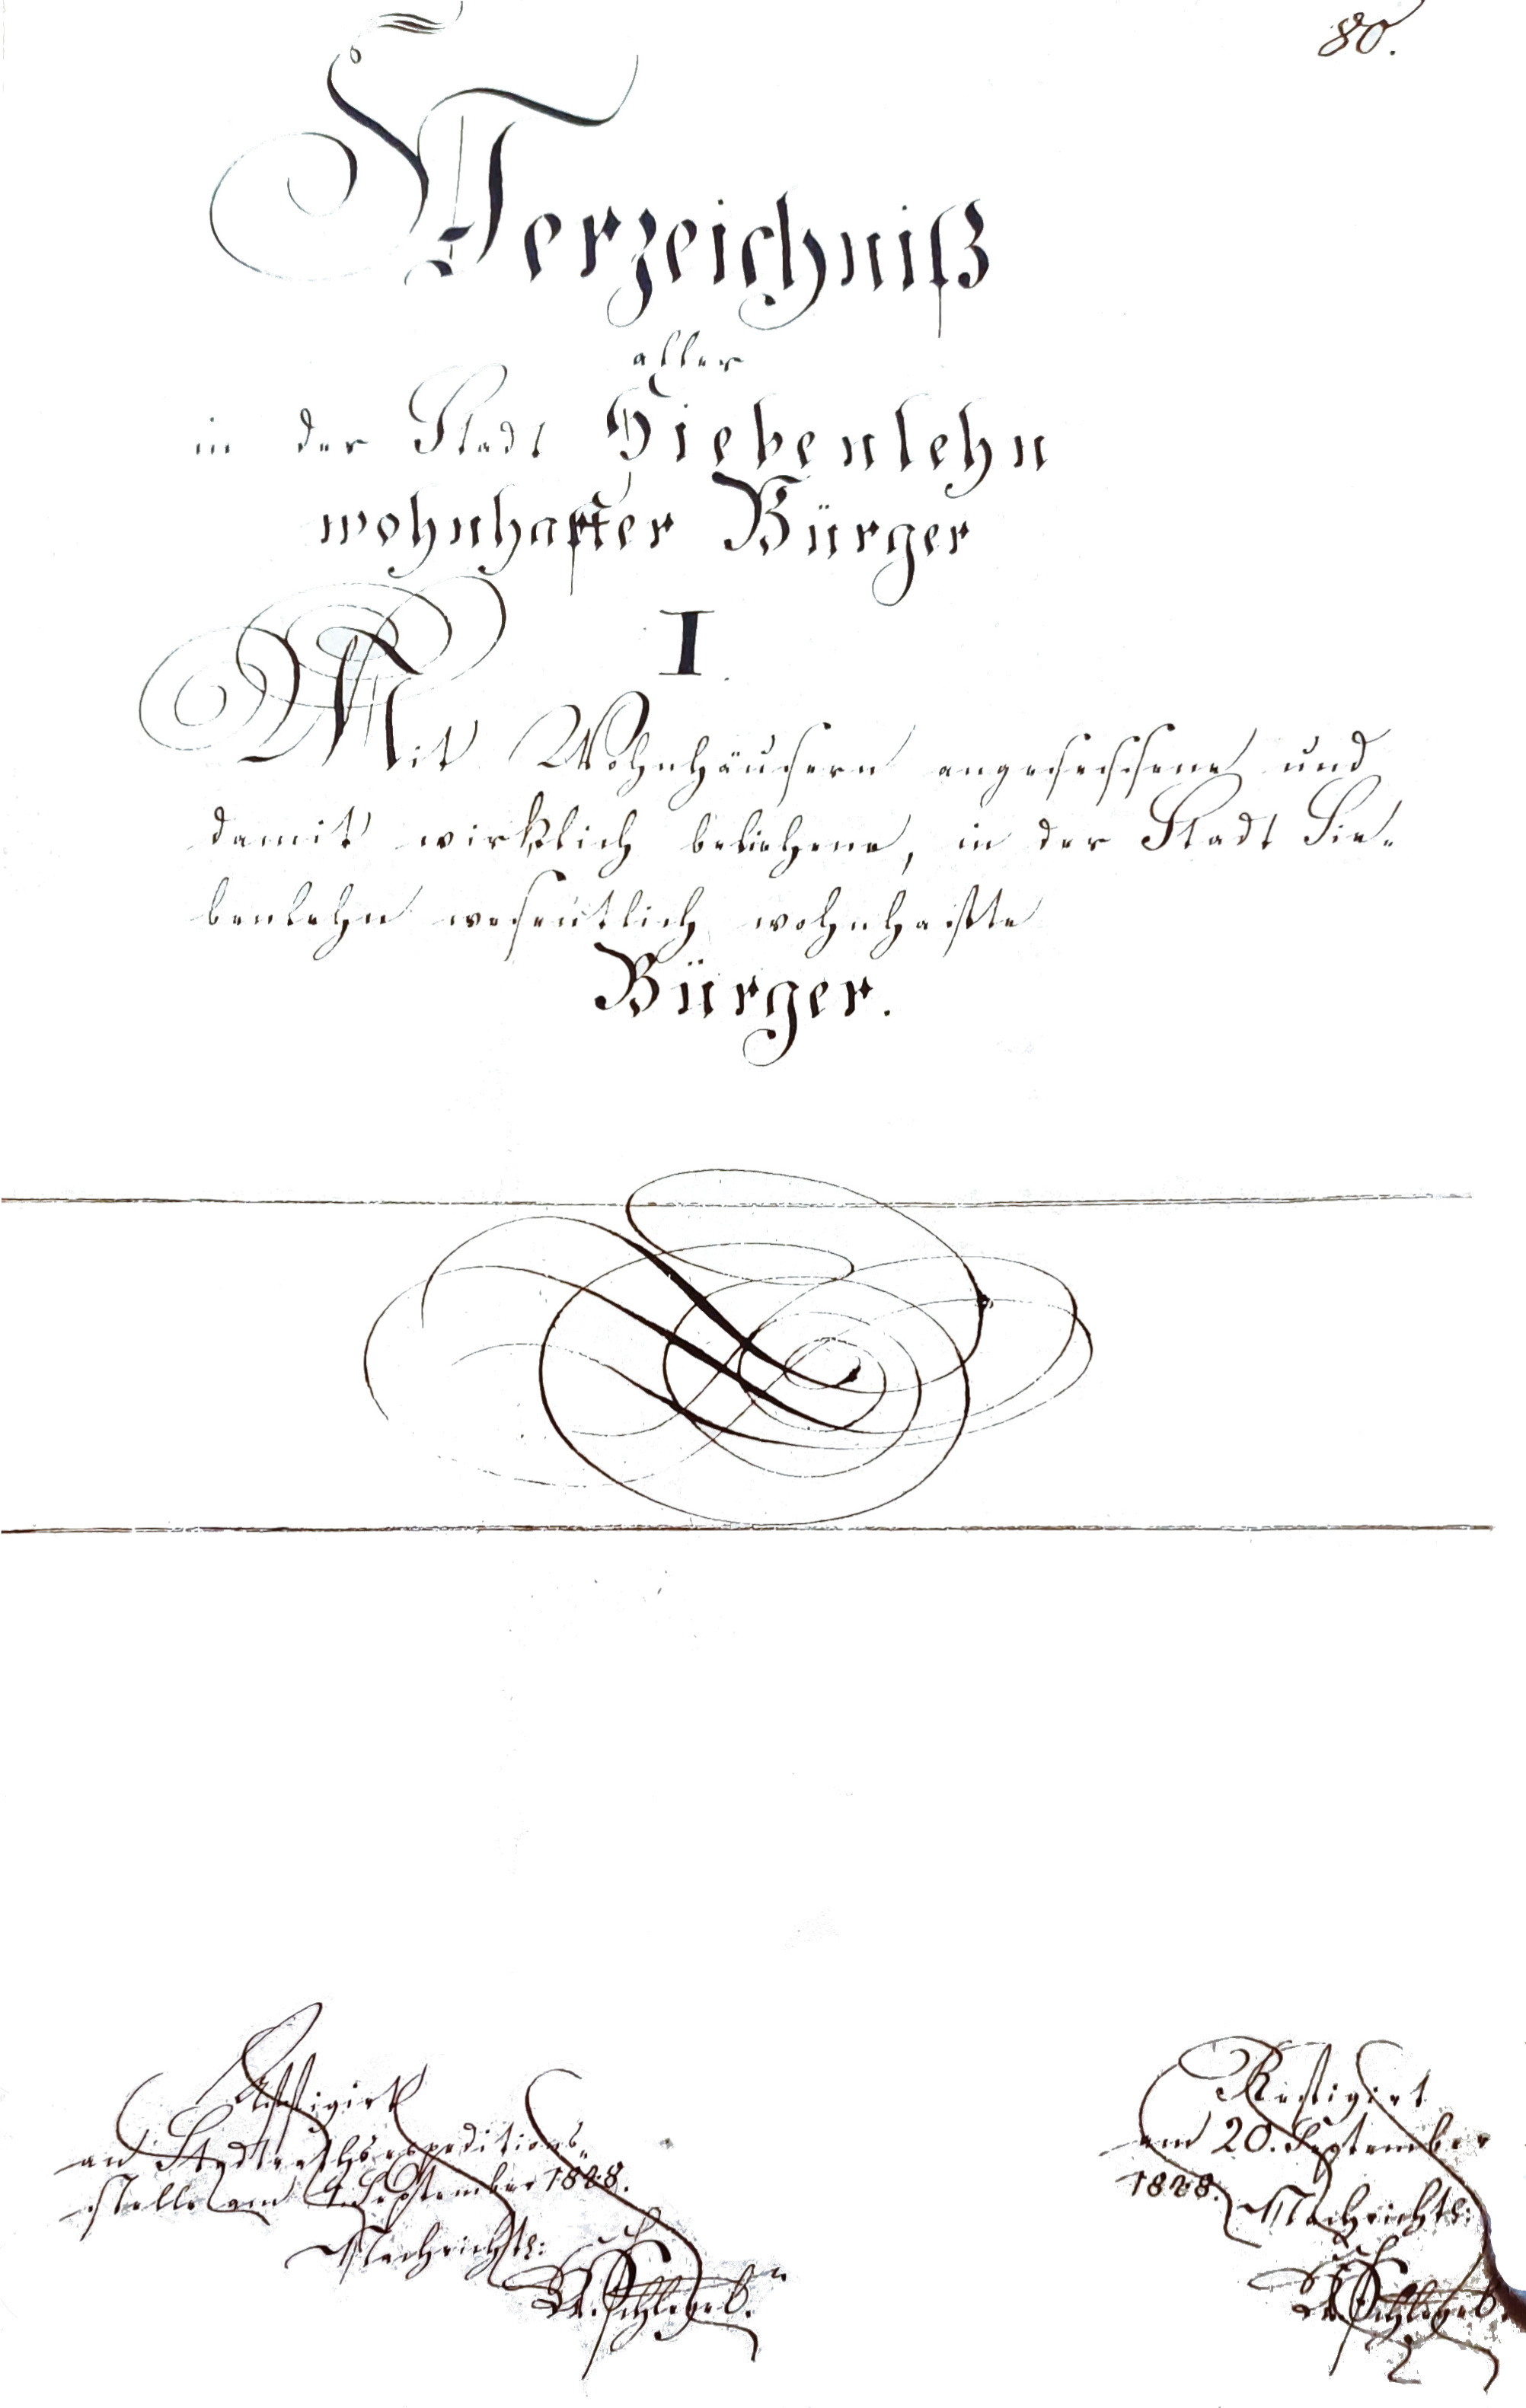 80.
Verzeichniß
aller
in der Stadt Siebenlehn
wohnhafter Bürger
I.
Mit Wohnhäusern angesessene und
damit wirklich beliehene, in der Stadt Sie-
benlehn wesentlich wohnhafte
Bürger.
Affigirt
an Stadtrathsexpeditions-
stelle am 4. September 1828.
Nachrichtl:
Refigirt
am 20. September
1828.
Nachrichtl: